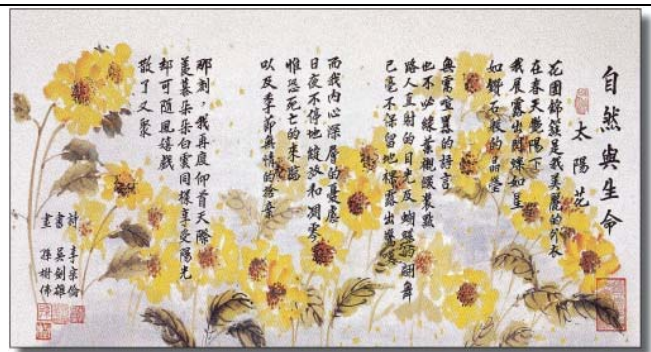 自然與生命
太陽花
花團錦簇是我美麗的外衣
在春天艷陽下
我展露出閃爍如星
如鑽石般的晶瑩
無需喧囂的語言
也不必綠葉襯暖裝點
路人直射的目光及蝴蝶的翩舞
已毫不保留地裸露出驚嘆
而我內心深層的憂慮
日夜不停地綻放和凋零
惟恐死亡的來臨
以及季節無情的捨棄
那刻,我再度仰首天際
羨慕朵朵白雲同樣享受陽光
卻可隨風嬉戲
散了又聚
詩 李宗倫
書 吳劍雄
畫 孫樹佛